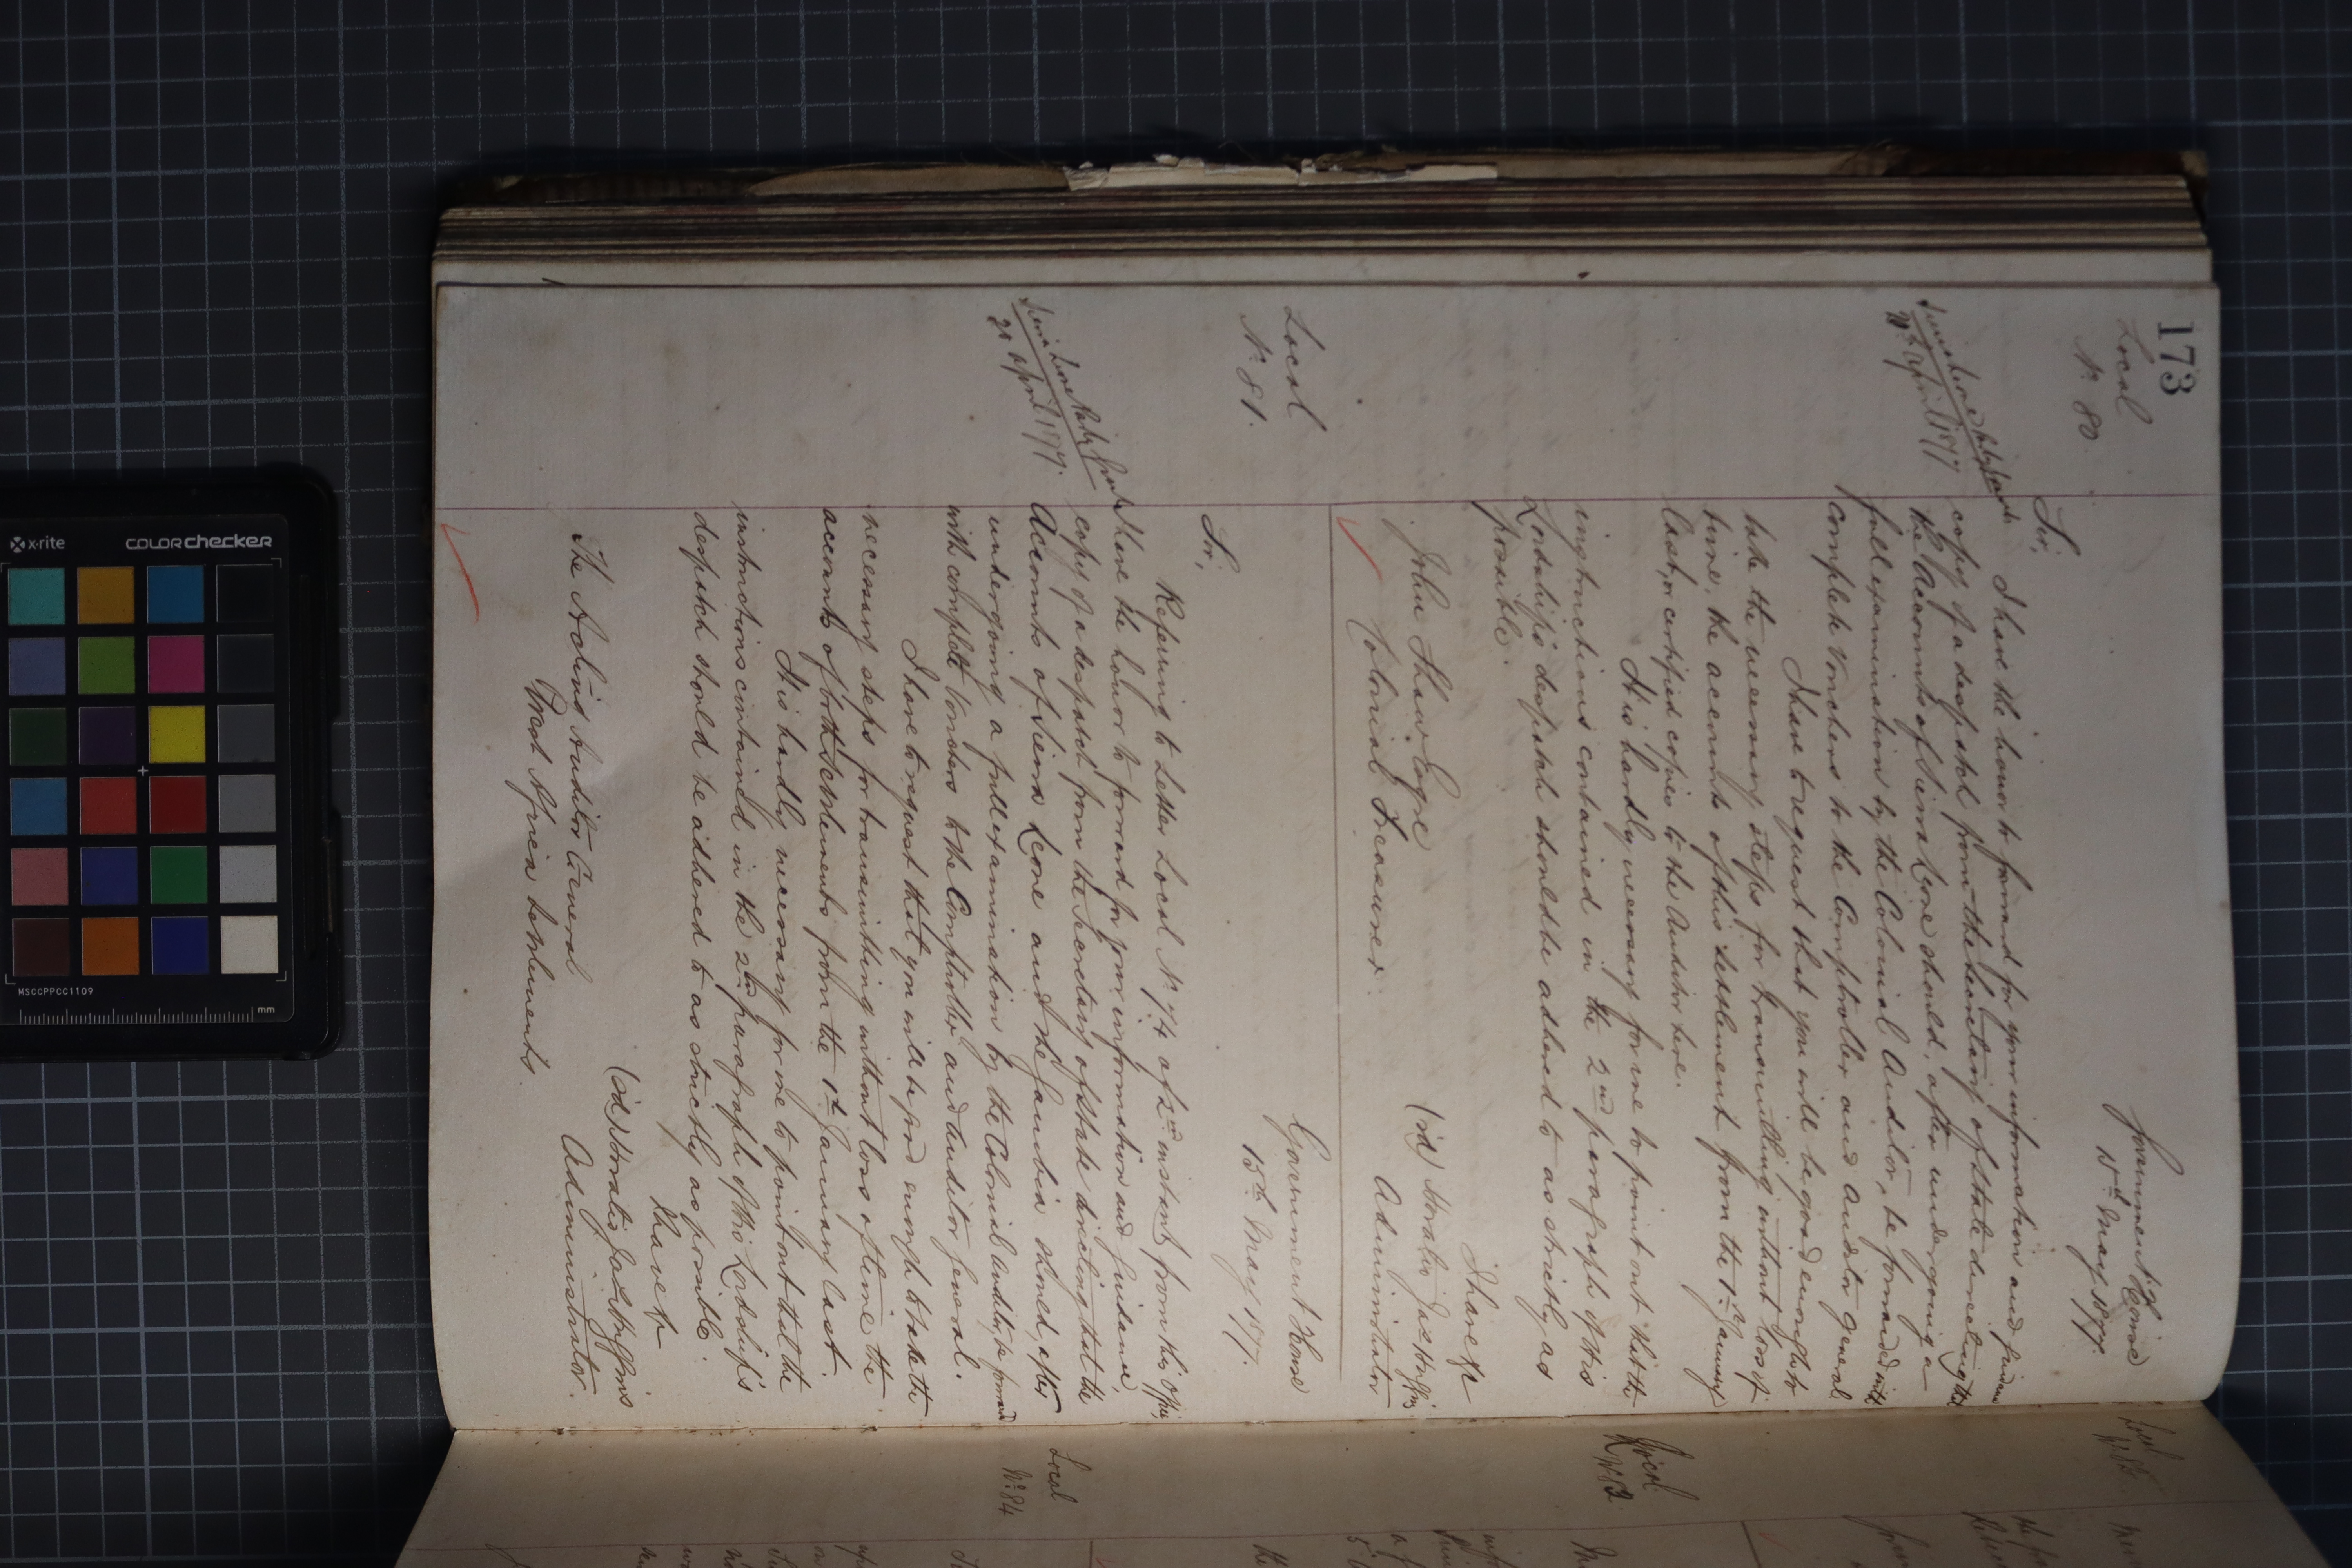 173
Local
No. 80.
Government House
15th May 1877.
Sir,
I have the honor to forward for your information and guidance
Sierra Leone
April 1877
copy of a despatch from the Secretary of State directing that
the Accounts of Sierra Leone should, after undergoing a
full examination by the Colonial Auditor, be forwarded with
complete vouchers to the Comptroller and Auditor General
I have to request that you will be good enough to
take the necessary steps for transmitting without loss of
time, the accounts of this Settlement from the 1st January
last, or certified copies to the Auditor here.
It is hardly necessary for me to point out that the
instructions contained in the 2nd paragraph of his
Lordship's despatch should be adhered to as strictly as
possible.
I have &c
(sd)
John Shaw Esqre
Administrator
Colonial Treasurer.
Local
No. 81.
Government House
15th May 1877.
Sir,
Referring to Letter Local No. 74 of 2nd instant from this Office,
I have the honor to forward for your information and guidance,
Sierra Leone
21 April 1877.
copy of a despatch from the Secretary of State directing that the
Accounts of Sierra Leone and the Gambia should, after
undergoing a full examination by the Colonial Auditor, be forward
with complete Vouchers to the Comptroller and Auditor General.
I have to request that you will be good enough to take the
necessary steps for transmitting without loss of time the
accounts of both Settlements from the 1st January last.
It is hardly necessary for me to point out that the
instructions contained in the 2nd paragraph of His Lordship's
despatch should be adhered to as strictly as possible.
I have &c
(sd)
The Acting Auditor General
Administrator.
West Africa Settlements.
Local
Local
No. 84
x·rite
colorchecker
MSCCPPCC1109
mm